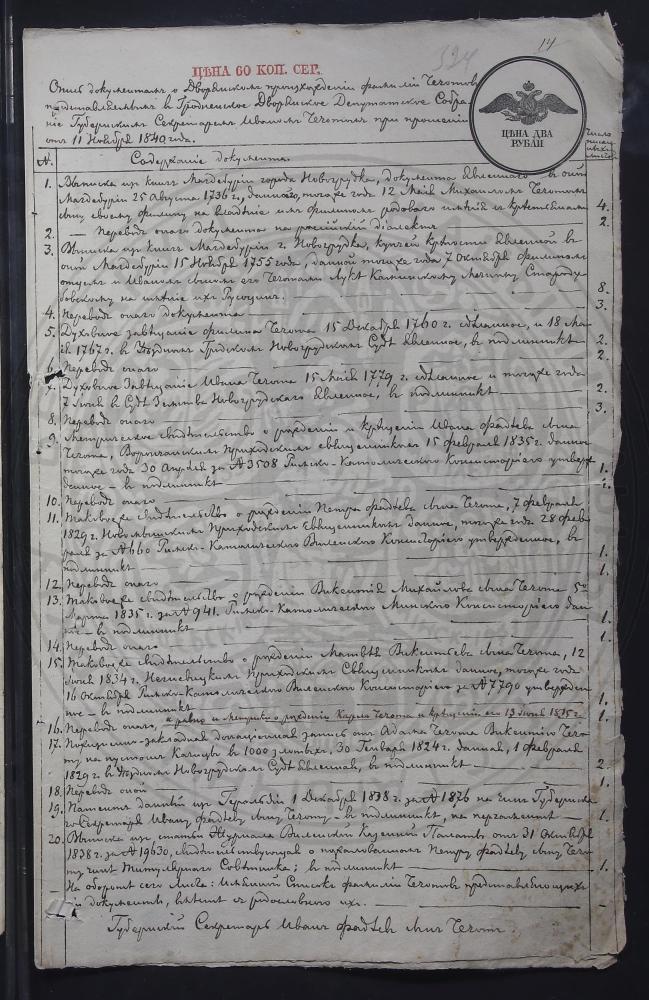 14
524
ЦѢНА 60 КОП. СЕР.
ЦѢНА ДВА
РУБЛИ
Опись документамъ о Дворянскомъ происхожденіи фамиліи Чечотовъ
представленнымъ въ Гродненское Дворянское Депутатское Собра-
ніе Губернскимъ Секретаремъ Иваномъ Чечотомъ при прошеніи
отъ 11 Ноября 1840 года.
N.
Содержаніе документа.
Число
листовъ
1. Выписка изъ книгъ Магдебуріи города Новогрудка, документа явленнаго въ оной
Магдебуріи 25 Августа 1736 г., даннаго, того же года 12 Мая Михаиломъ Чечотомъ
сыну своему Филипу на владѣніе имъ Филипомъ родоваго имѣнія съ крестьянами 4.
2. — Переводъ онаго документа на россійскій діалектъ 2.
3. Выписка изъ книгъ Магдебуріи г. Новогрудка, купчей крѣпости явленной въ
оной Магдебуріи 15 Ноября 1755 года, данной того же года 7 Октября Филипомъ
отцемъ и Иваномъ сыномъ его Чечотами Лукѣ
на имѣніе ихъ 8.
4. Переводъ онаго документа 3.
5. Духовное завѣщаніе Филипа Чечота 15 Декабря 1760 г. сдѣланное, и 18 Ма-
я 1767 г. въ Уѣздномъ Гродскомъ Новогрудскомъ Судѣ явленное, въ подлинникѣ 2.
6. Переводъ онаго 2.
7. Духовное Завѣщаніе Ивана Чечота 15 Мая 1779 г. сдѣланное и того же года
7 въ Судѣ Земства Новогрудскаго явленное, въ подлинникѣ 2.
8. Переводъ онаго 3.
9. Метрическое свидѣтельство о рожденіи и крещеніи Ивана Фадѣева сына
Чечота, Приходскимъ священникомъ 15 Февраля 1835 г. данное
того же года 30 Апрѣля за N 3508 Римско-Католическаго Консисторіею утверж-
денное — въ подлинникѣ 1.
10. Переводъ онаго 1.
11. Таковое же свидѣтельство о рожденіи Петра Фадѣева сына Чечота, 7 Февраля
1829 г. Приходскимъ Священникомъ данное, того же года 28 Фев-
раля за N 660 Римско-Католическаго Виленскаго Консисторіею утвержденное, въ
подлинникѣ 1.
12. Переводъ онаго 1.
13. Таковое же свидѣтельство о рожденіи Викентія Михайлова сына Чечота 5го
Марта 1835 г. за N 941. Римско-Католическаго Минскаго Консисторіею дан-
ное — въ подлинникѣ 1.
14. Переводъ онаго 1.
15. Таковое же свидѣтельство о рожденіи Матвѣя Викентьева сына Чечота, 12
1834 г. Приходскимъ Священникомъ данное, того же года
16 Октября Римско-Католическаго Виленскаго Консисторіею за N 7790 утвержден-
ное — въ подлинникѣ 1.
16. Переводъ онаго, 1.
17. запись отъ Адама Чечота Викентію Чечо-
ту на въ 1000 злотыхъ, 30 Генваря 1824 г. данная, 1 Февраля
1829 г. въ Уѣздномъ Новогрудскомъ Судѣ явленная, въ подлинникѣ — 2.
18. Переводъ оной 1.
19. Патентъ данный изъ Герольдіи 1 Декабря 1838 г. за N 1876 на чинъ Губернска-
го Секретаря Ивану Фадѣеву сыну Чечоту — въ подлинникѣ, на пергаментѣ — 1.
20. Выписка изъ статьи Журнала Виленской Казенной Палаты отъ 31 Октября
1838 г. за N 19630, свидѣтельствующая о пожалованіи Петру Фадѣеву сыну Чечо-
ту чина Титулярнаго Совѣтника; въ подлинникѣ 1.
— На оборотѣ сего листа: Имянной Списокъ фамиліи Чечотовъ представляющихъ
сіи документы, вмѣстѣ съ родословною ихъ.
Губернскій Секретарь Иванъ Фадѣевъ сынъ Чечотъ.